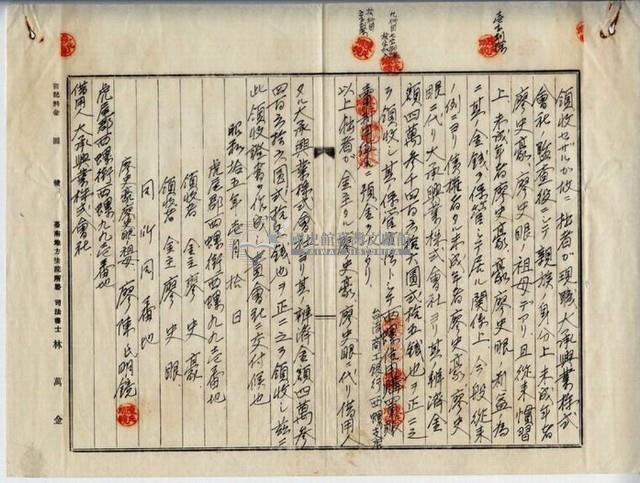 壱字削除
領收セザルカ故ニ拙者ガ現職大承興業株式
會社ノ監査役ニシテ親族ノ身分上未成年者
廖史豪、廖史眼祖母デアリ且從來慣習
上未成年者廖史豪、廖史眼ノ利益為
ニ其ノ金錢ヲ保準シテ居ル關係上今般從來
ノ例ニヨリ債權者タル未成年者廖史豪、廖史
眼ニ代リ大承興業株式會社ヨリ其ノ辨濟金
額四萬參千四百六拾六圓貳拾五錢也ヲ正ニ之
ヲ領收シ其ノ保管方法トシテ
台湾商工銀行西螺支店
ニ預金
以上拙者ガ金主タル廖史豪、廖史眼ニ代リ借用人
タル大承興業株式會社ヨリ其ノ辨濟金額四萬參千
四百六拾六圓貳拾五錢也ヲ正ニ之ヲ領收シ茲ニ
此ノ領收證書ヲ作成シ同會社ニ交付候也
昭和拾五年壱月拾日
虎尾郡西螺街西螺九九六番地
領收者 金主 廖史豪
領收者 金主 廖史眼
同所同番地
廖史豪、廖史眼祖母 廖陳氏明鏡
虎尾郡西螺街西螺九九六番地
借用人 大承興業株式會社
書記料金 圓 錢
臺南地方法院所屬 司法書士 林萬金
國史館臺灣文獻館